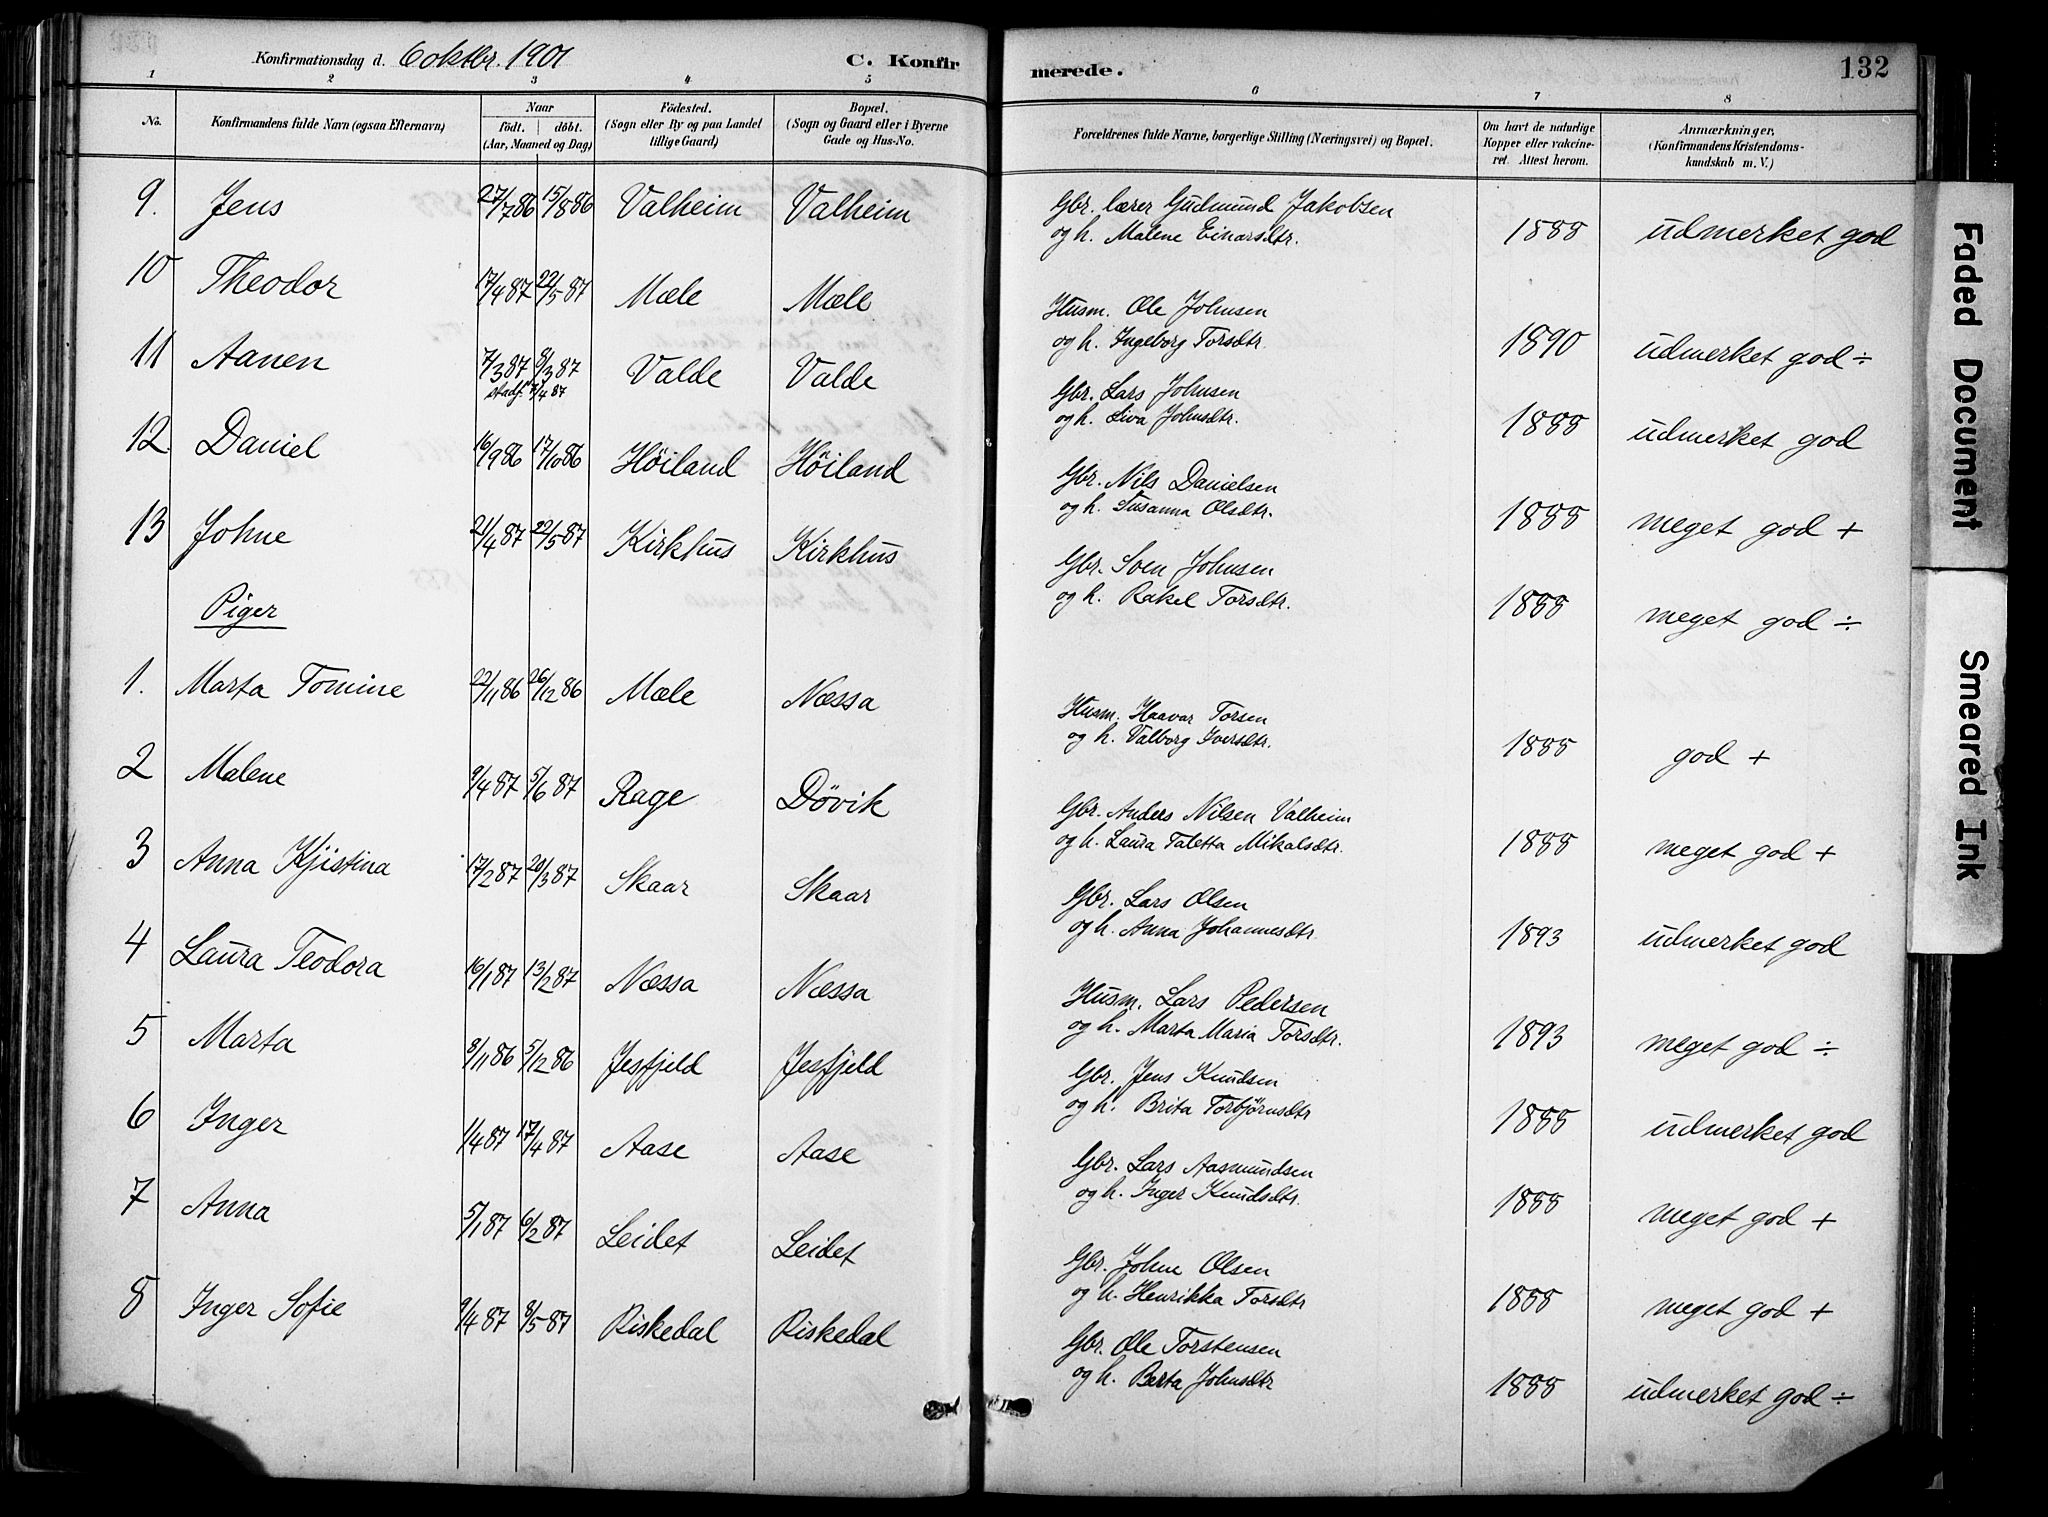 Konfirmationsdag d. 6 oktbr. 1901 C. Konfirmerede. 132
1 2 3 4 5 6 7 8
No. Konfirmandens fulde Navn (ogsaa Efternavn) Naar födt. döbt. (Aar, Maaned og Dag) Födested. (Sogn eller By og paa Landet tillige Gaard) Bopæl. (Sogn og Gaard eller i Byerne Gade og Hus-No. Forældrenes fulde Navne, borgerlige Stilling (Næringsvei) og Bopæl. Om havt de naturlige Kopper eller vakcineret. Attest herom. Anmærkninger. (Konfirmandens Kristendomskundskab m. V.)
9. Jens 27/7 86 15/8 86 Valheim Valheim Gbr. lærer Gudmund Jakobsen
og h. Malene Einarsdtr. 1888 udmerket god
10 Theodor 17/4 87 22/5 87 Mæle Mæle Husm. Ole Johnsen
og h. Ingeborg Torsdtr. 1890 udmerket god ÷
11 Aanen 7/3 87 8/3 87 Valde Valde Gbr. Lars Johnsen
stadf. 11/4 87 og h. Siva Johnsdtr. 1888 udmerket god
12 Daniel 16/9 86 17/10 86 Höiland Höiland Gbr. Nils Danielsen
og h. Susanna Olsdtr. 1888 meget god +
13 Johne 21/4 87 22/5 87 Kirkhus Kirkhus Gbr. Sven Johnsen
og h. Rakel Torsdtr. 1888 meget god ÷
Piger
1. Marta Tomine 22/11 86 26/12 86 Mæle Næssa Husm. Haavar Torsen
og h. Valborg Iversdtr. 1888 god +
2 Malene 9/4 87 5/6 87 Rage Døvik Gbr. Anders Nilsen Valheim
og h. Laura Taletta Mikalsdtr. 1888 meget god +
3 Anna Kjistina 17/2 87 20/3 87 Skaar Skaar Gbr. Lars Olsen
og h. Anna Johannesdtr. 1893 udmerket god
4 Laura Teodora 16/1 87 13/2 87 Næssa Næssa Husm. Lars Pedersen
og h. Marta Maria Torsdtr. 1893 meget god ÷
5 Marta 8/11 86 5/12 86 Jesfjeld Jesfjeld Gbr. Jens Knudsen
og h. Brita Torbjørnsdtr 1888 udmerket god
6 Inger 1/4 87 17/4 87 Aase Aase Gbr. Lars Aasmundsen
og h. Inger Knudsdtr. 1888 meget god +
7 Anna 5/1 87 6/2 87 Leidet Leidet Gbr. Johne Olsen
og h. Henrikka Torsdtr 1888 meget god +
8 Inger Sofie 9/4 87 8/5 87 Riskedal Riskedal Gbr. Ole Torstensen
og h. Berta Johnsdtr 1888 udmerket god ÷
Faded Document
Smeared Ink